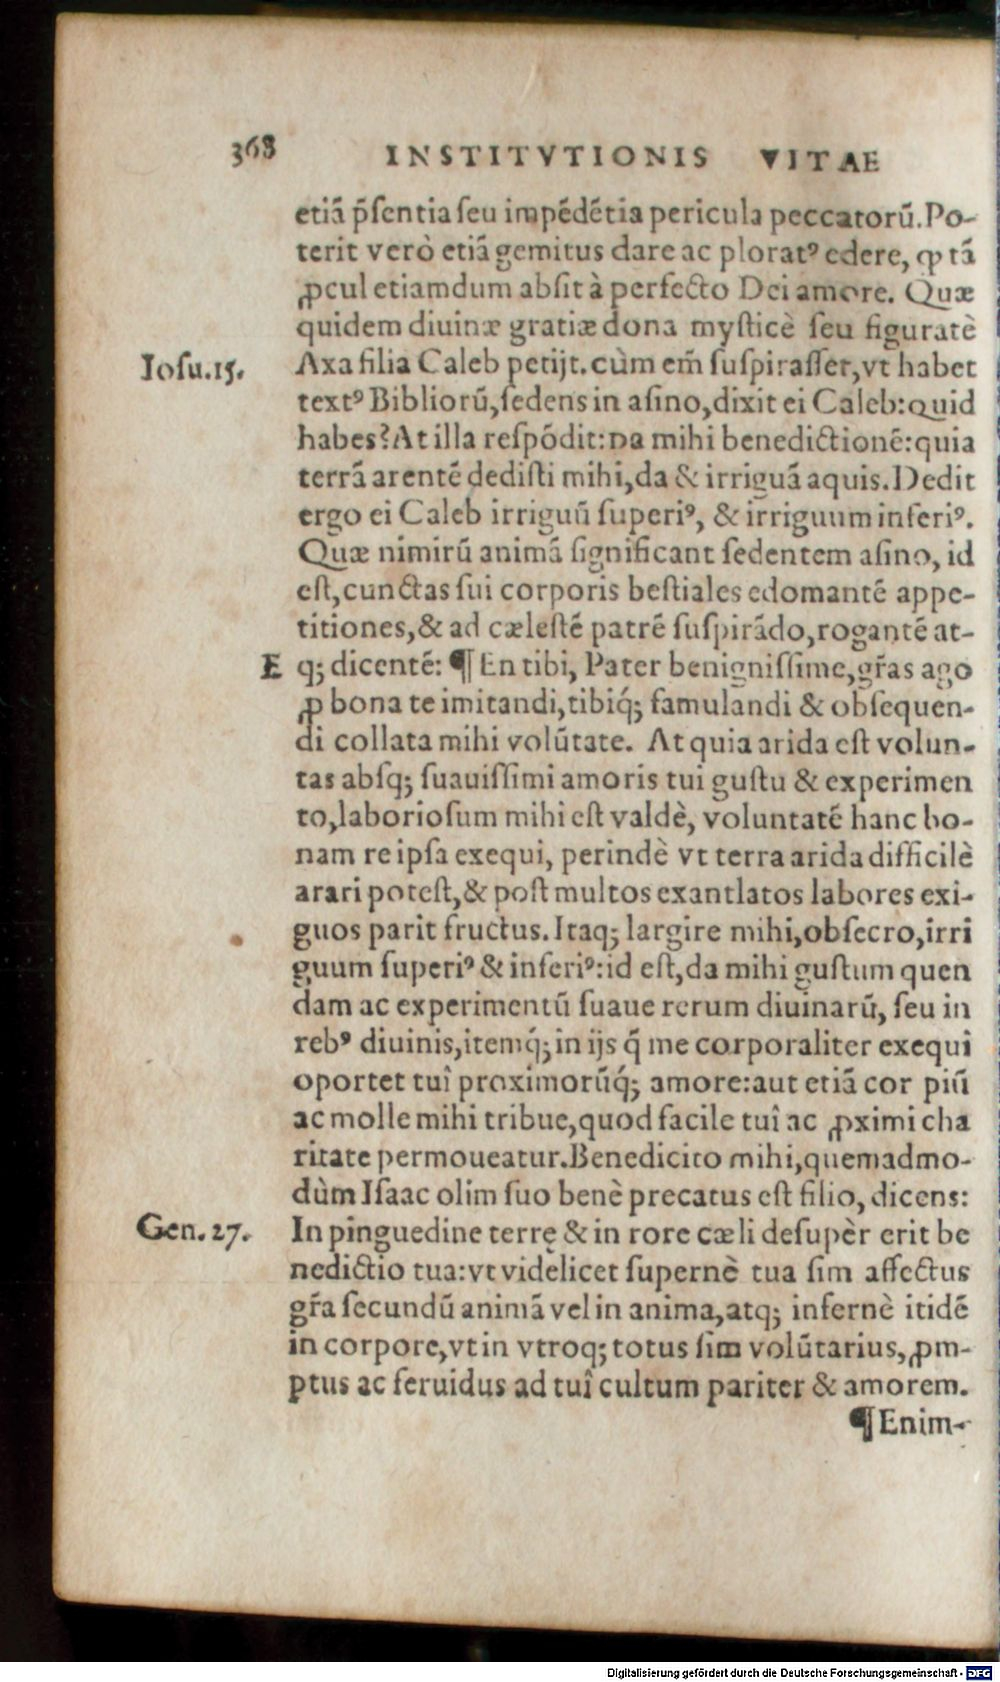 368 INSTITVTIONIS VITAE
etiã p̃ſentia ſeu impẽdẽtia pericula peccatorũ.Po-
terit verò etiã gemitus dare ac plorat⁹ edere, ꝙ tã
ꝓcul etiamdum abſit à perfecto Dei amore. Quæ
quidem diuinæ gratiæ dona myſticè ſeu figuratè
Ioſu.15. Axa filia Caleb petijt.cùm em̃ ſuſpiraſſet,vt habet
text⁹ Bibliorũ,ſedens in aſino,dixit ei Caleb:quid
habes?At illa reſpõdit:Da mihi benedictionẽ:quia
terrã arentẽ dediſti mihi,da & irriguã aquis.Dedit
ergo ei Caleb irriguũ ſuperi⁹, & irriguum inferi⁹.
Quæ nimirũ animã ſignificant ſedentem aſino, id
eſt,cunctas ſui corporis beſtiales edomantẽ appe-
titiones,& ad cæleſtẽ patrẽ ſuſpirãdo,rogantẽ at-
E q; dicentẽ: ¶ En tibi, Pater benigniſſime,gr̃as ago
ꝓ bona te imitandi,tibiq́; famulandi & obſequen-
di collata mihi volũtate. At quia arida eſt volun-
tas abſq; ſuauiſſimi amoris tui guſtu & experimen
to,laborioſum mihi eſt valdè, voluntatẽ hanc bo-
nam re ipſa exequi, perindè vt terra arida difficilè
arari poteſt,& poſt multos exantlatos labores exi-
guos parit fructus.Itaq; largire mihi,obſecro,irri
guum ſuperi⁹ & inferi⁹:id eſt,da mihi guſtum quen
dam ac experimentũ ſuaue rerum diuinarũ, ſeu in
reb⁹ diuinis,itemq́; in ijs q̃ me corporaliter exequi
oportet tuî proximorũq́; amore:aut etiã cor piũ
ac molle mihi tribue,quod facile tuî ac ꝓximi cha
ritate permoueatur.Benedicito mihi,quemadmo-
dùm Iſaac olim ſuo benè precatus eſt filio, dicens:
Gen. 27. In pinguedine terrę & in rore cæli deſupèr erit be
nedictio tua:vt videlicet ſupernè tua ſim affectus
gr̃a ſecundũ animã vel in anima,atq; infernè itidẽ
in corpore,vt in vtroq; totus ſim volũtarius,ꝓm-
ptus ac feruidus ad tuî cultum pariter & amorem.
¶ Enim-
Digitalisierung gefördert durch die Deutsche Forschungsgemeinschaft - DFG